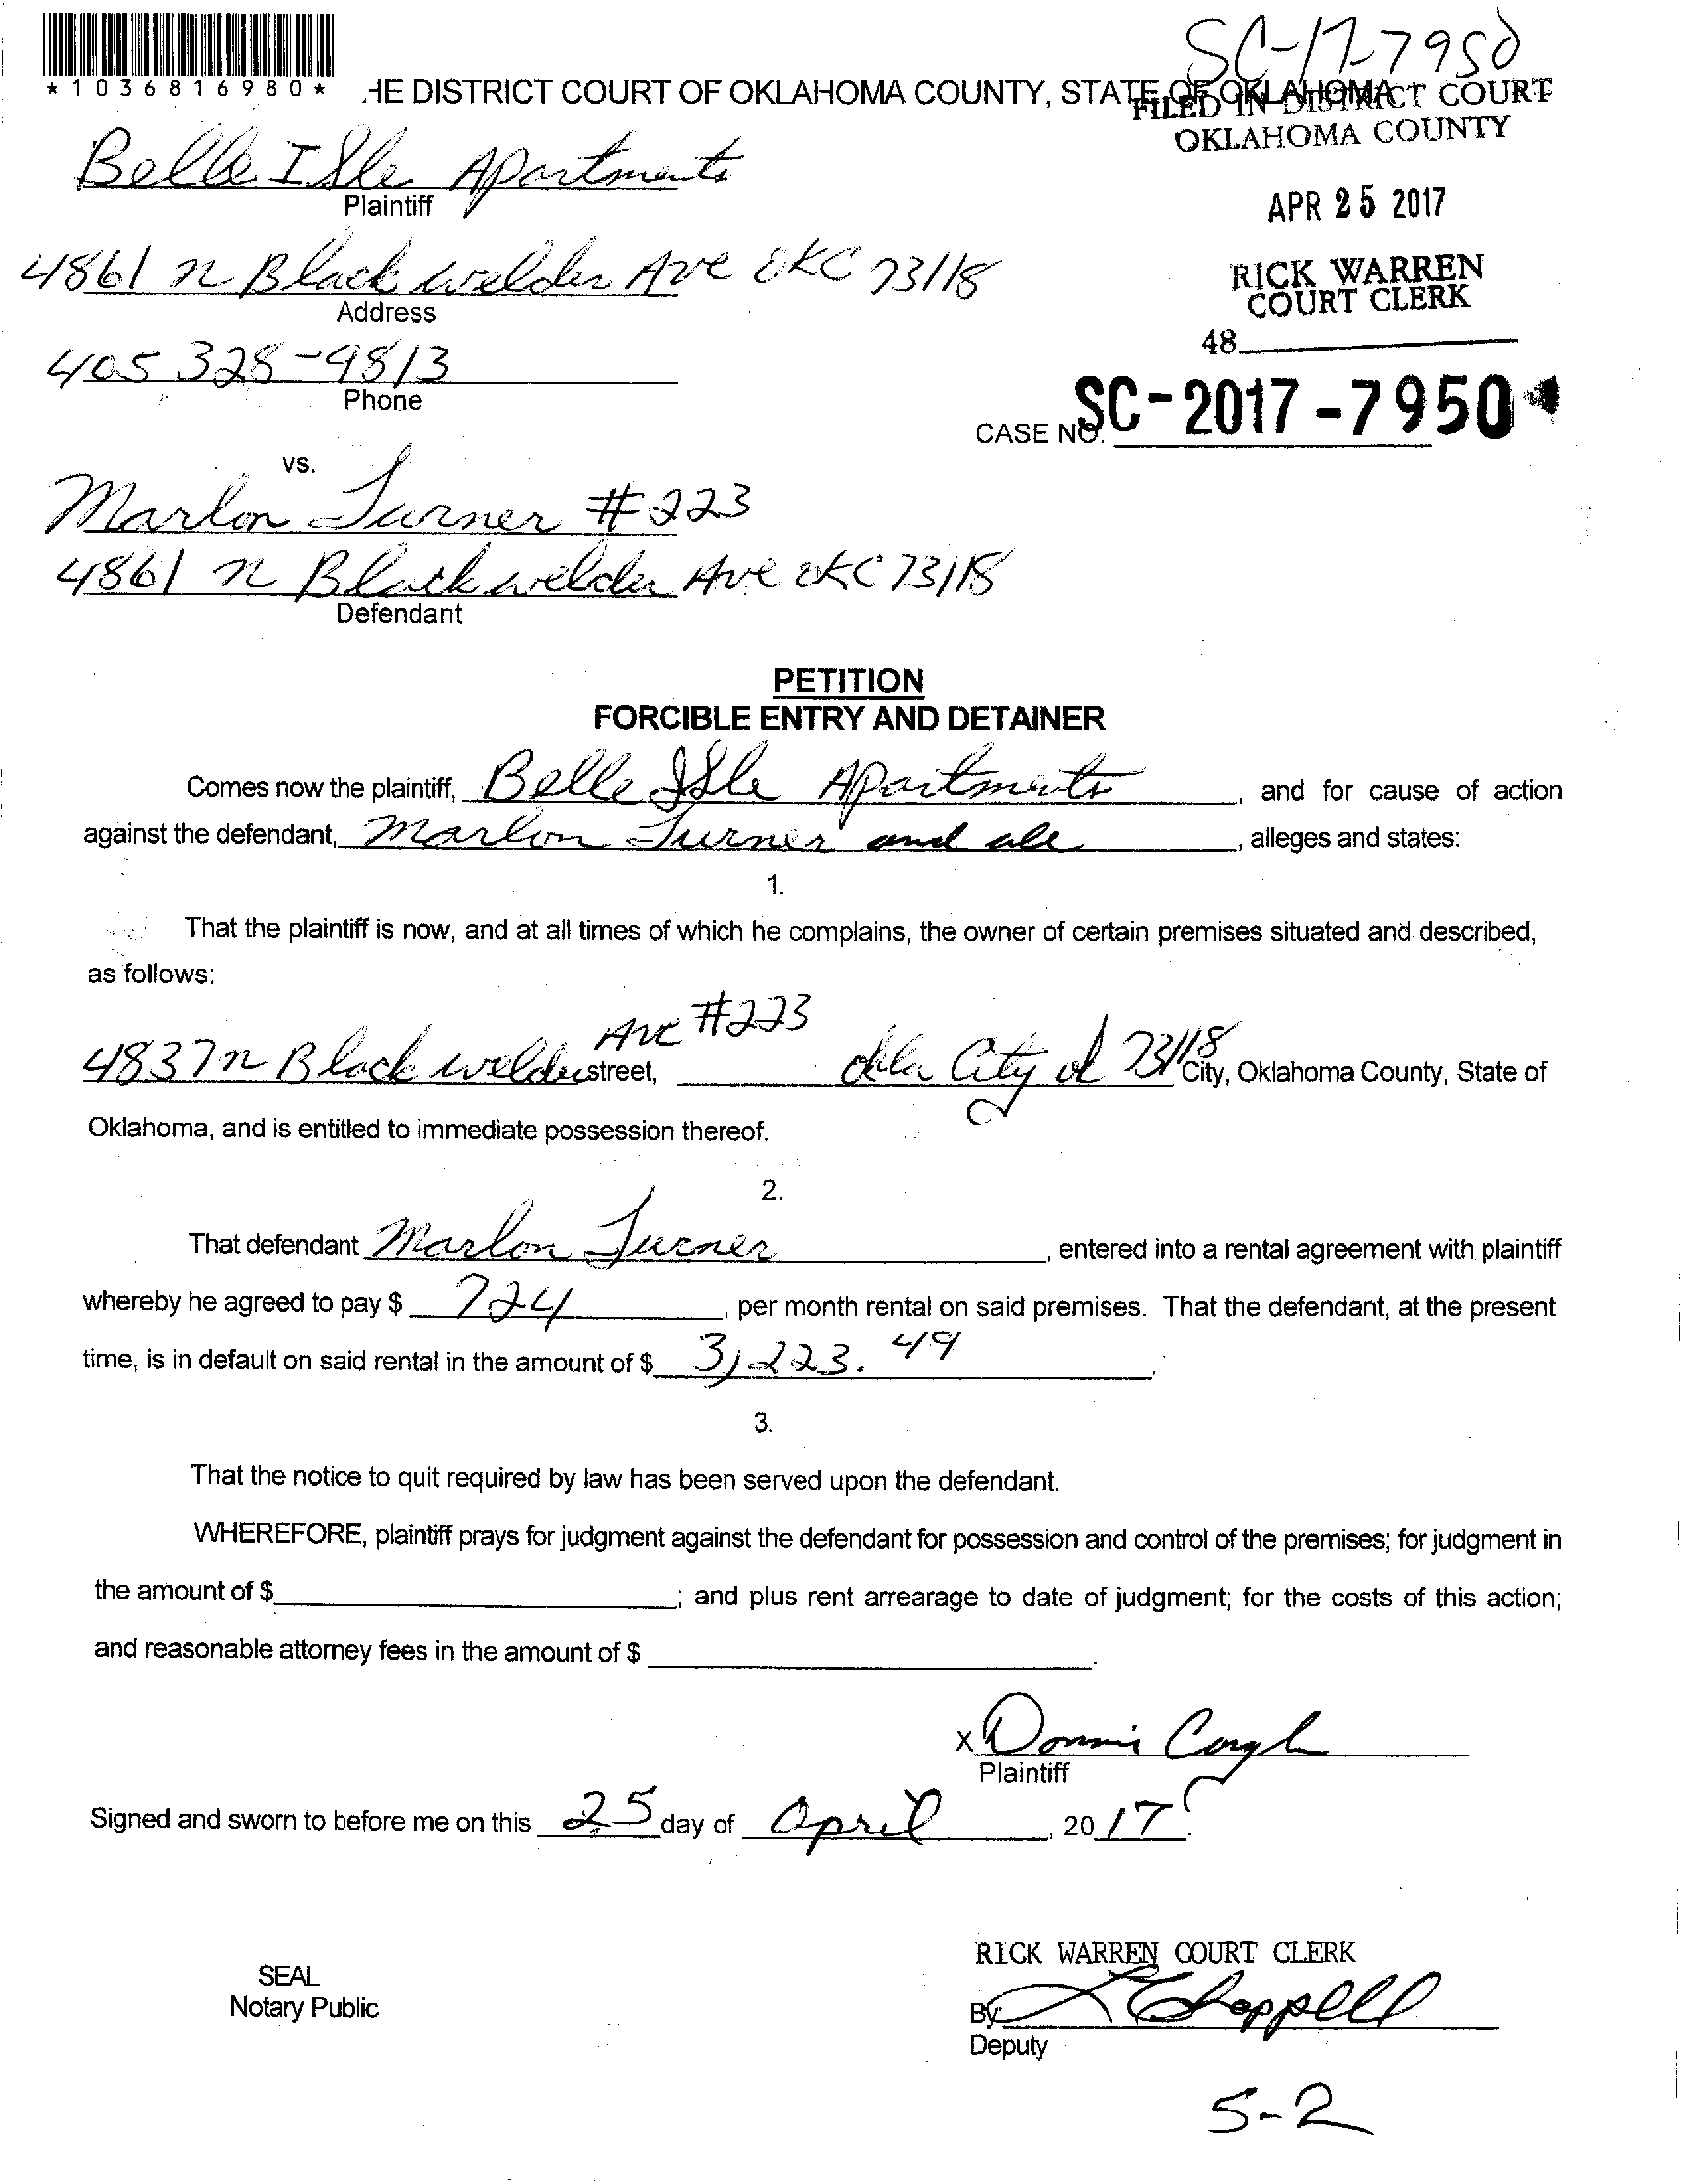 SC-17-7950
*1036816980*
HE DISTRICT COURT OF OKLAHOMA COUNTY, STATE OF OKLAHOMA
FILED IN DISTRICT COURT
OKLAHOMA COUNTY
Belle Isle Apartments
Plaintiff
APR 25 2017
4861 N Blackwelder Ave OKC 73118
Address
RICK WARREN
COURT CLERK
48
405 328-9813
Phone
CASE NO. SC-2017-7950
vs.
Marlon Turner #223
4861 N Blackwelder Ave OKC 73118
Defendant
PETITION
FORCIBLE ENTRY AND DETAINER
Comes now the plaintiff, Belle Isle Apartments, and for cause of action
against the defendant, Marlon Turner and all, alleges and states:
1.
That the plaintiff is now, and at all times of which he complains, the owner of certain premises situated and described,
as follows:
4837 N Blackwelder Ave #223 street, Okla City ok 73118 City, Oklahoma County, State of
Oklahoma, and is entitled to immediate possession thereof.
2.
That defendant Marlon Turner, entered into a rental agreement with plaintiff
whereby he agreed to pay $ 724, per month rental on said premises. That the defendant, at the present
time, is in default on said rental in the amount of $ 3,223.49.
3.
That the notice to quit required by law has been served upon the defendant.
WHEREFORE, plaintiff prays for judgment against the defendant for possession and control of the premises; for judgment in
the amount of $ ; and plus rent arrearage to date of judgment; for the costs of this action;
and reasonable attorney fees in the amount of $ .
X Donnis
Plaintiff
Signed and sworn to before me on this 25 day of April, 2017.
RICK WARREN COURT CLERK
SEAL
Notary Public
By Chappell
Deputy
5-2